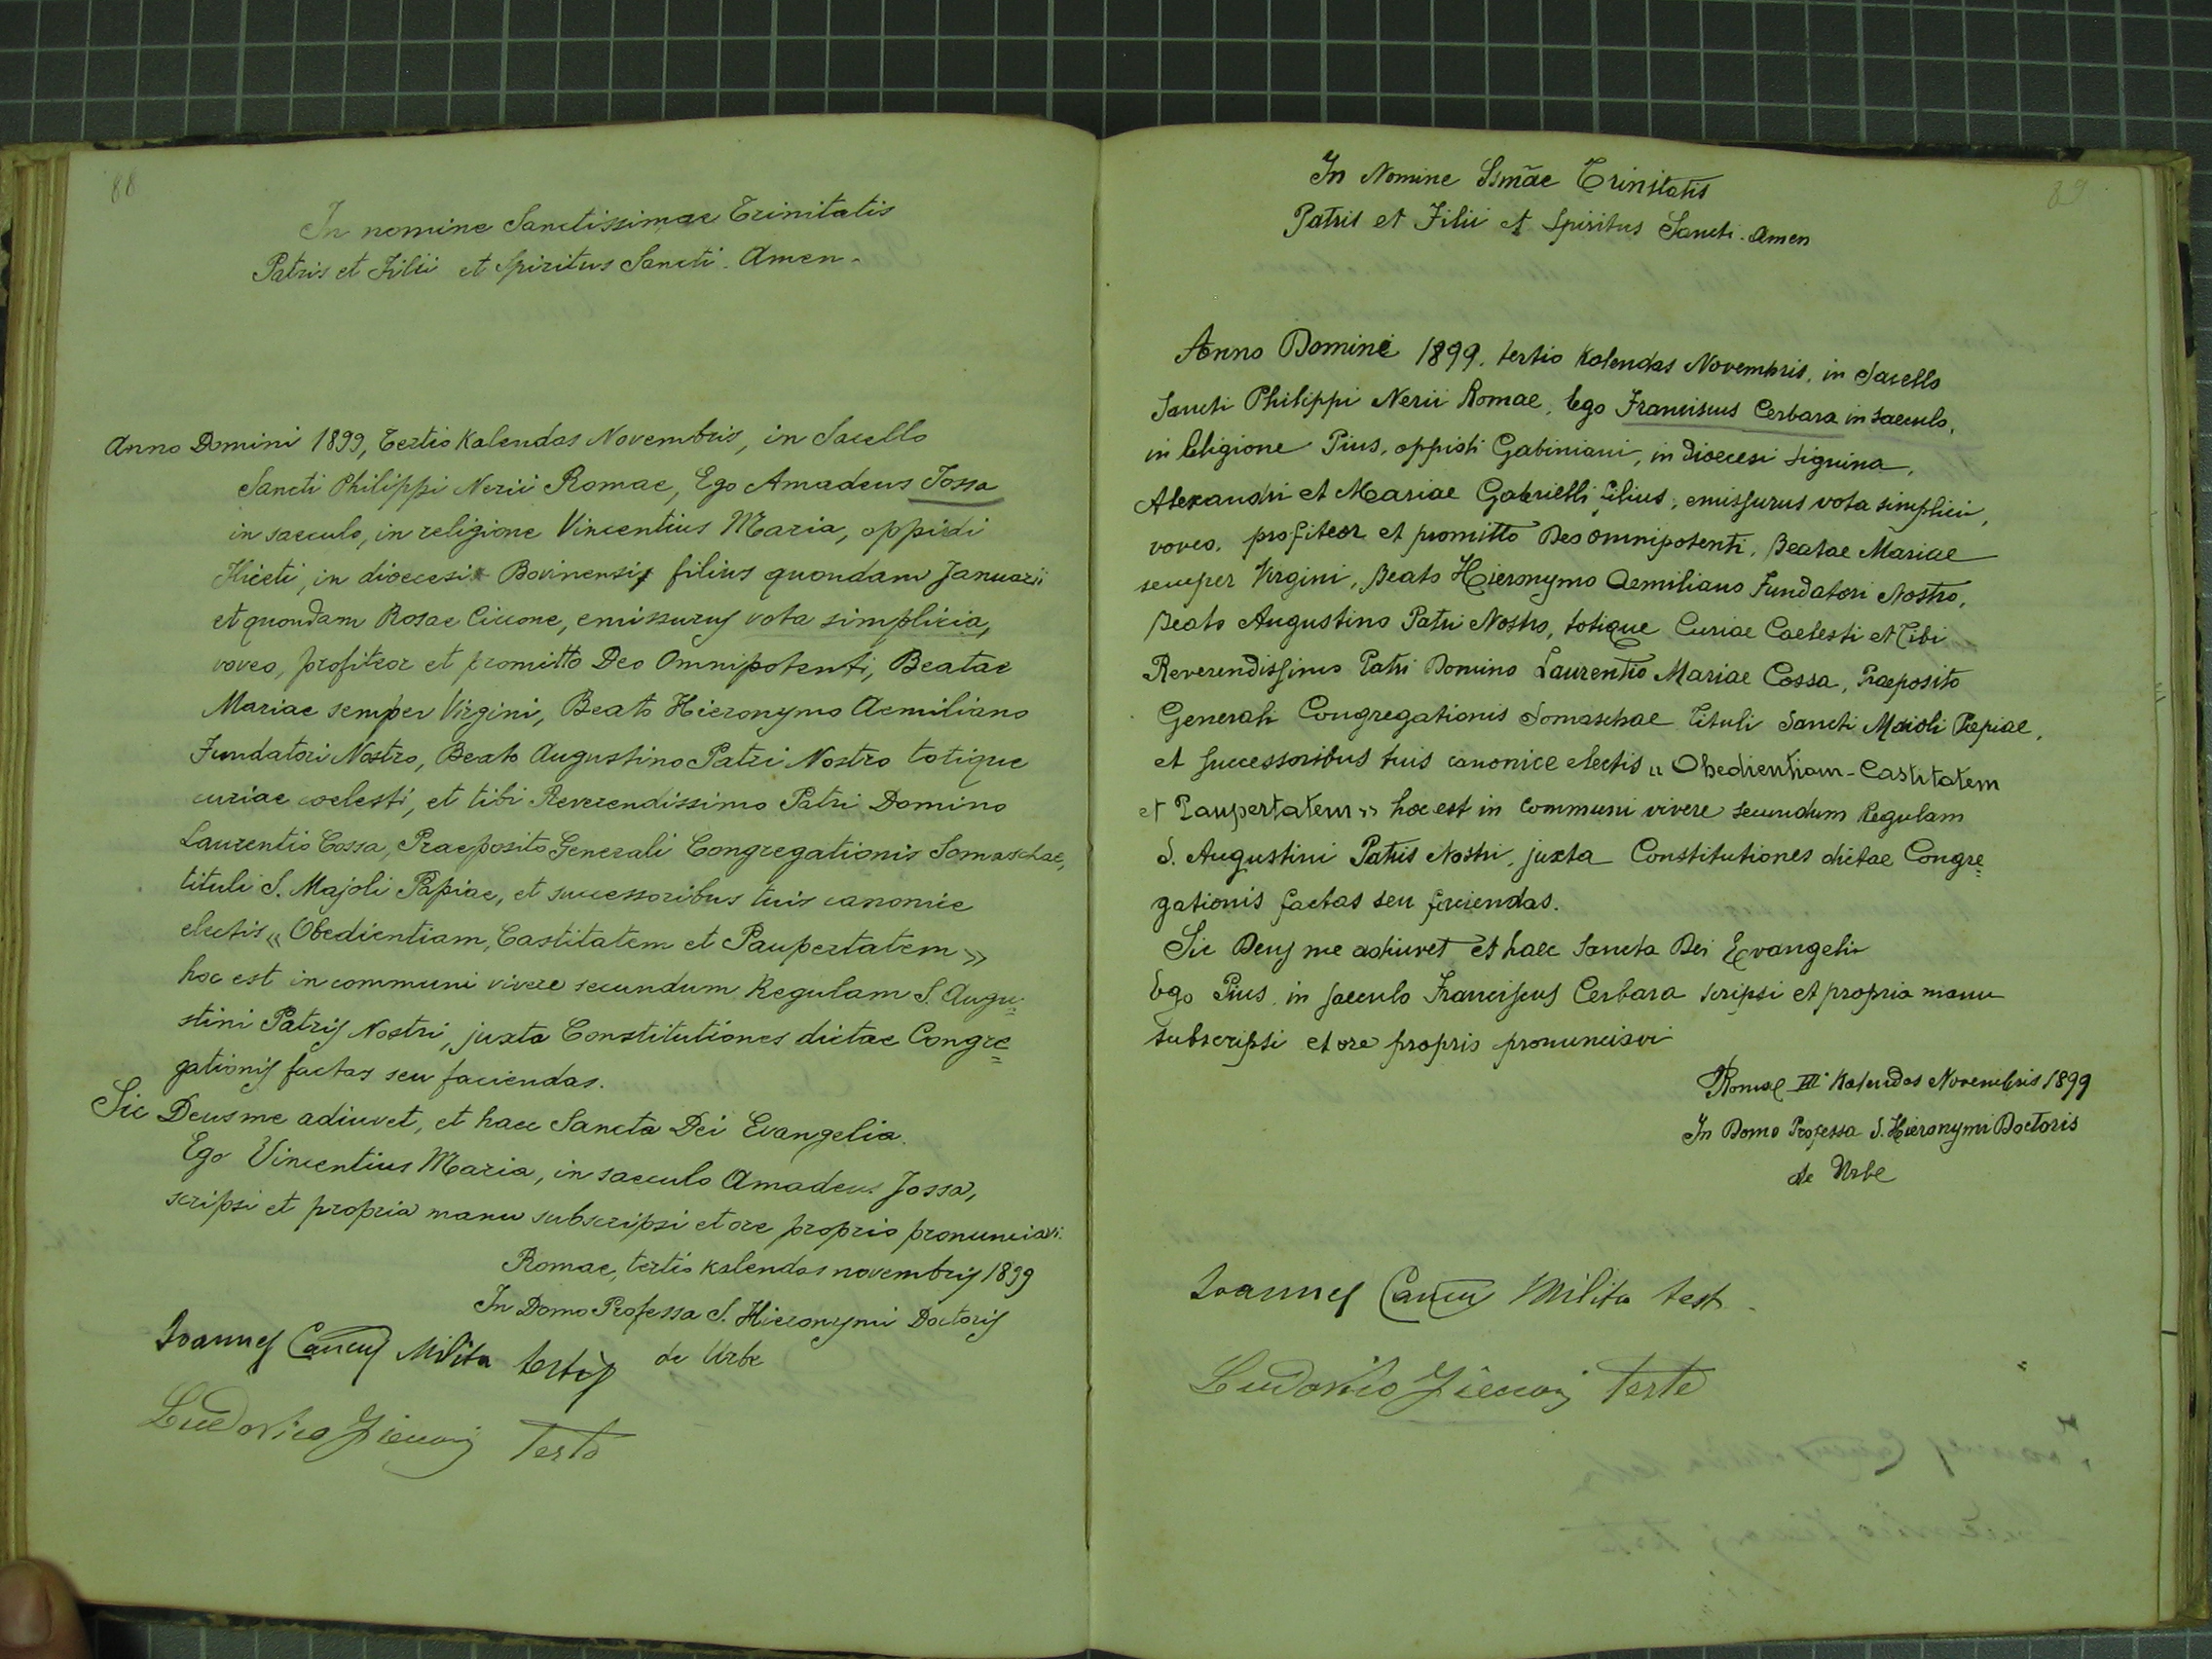 88
In nomine Sanctissimae Trinitatis
Patris et Filii et Spiritus Sancti. Amen.
Anno Domini 1899, tertio Kalendas Novembris, in Sacello
Sancti Philippi Nerii Romae, Ego Amadeus Jossa
in saeculo, in religione Vincentius Maria, oppidi
in dioecesi Bovinensis filius quondam Januarii
et quondam Rosae Ciccone, emissurus vota simplicia,
voveo, profiteor et promitto Deo Omnipotenti, Beatae
Mariae semper Virgini, Beato Hieronymo Aemiliano
Fundatori Nostro, Beato Augustino Patri Nostro totique
curiae coelesti, et tibi Reverendissimo Patri Domino
Laurentio Cossa, Praeposito Generali Congregationis Somaschae,
tituli S. Majoli Papiae, et successoribus tuis canonice
electis « Obedientiam, Castitatem et Paupertatem »
hoc est in communi vivere secundum Regulam S. Augu=
stini Patris Nostri, juxta Constitutiones dictae Congre=
gationis factas seu faciendas.
Sic Deus me adiuvet, et haec Sancta Dei Evangelia.
Ego Vincentius Maria, in saeculo Amadeus Jossa,
scripsi et propria manu subscripsi et ore proprio pronunciavi.
Romae, tertio kalendas novembris 1899
In Domo Professa S. Hieronymi Doctoris
de Urbe
Ioannes Milita testis
Ludovico teste
89
In Nomine Ssmãe Trinitatis
Patris et Filii et Spiritus Sancti. Amen
Anno Domini 1899. tertio Kalendas Novembris, in Sacello
Sancti Philippi Nerii Romae, Ego Franciscus Cerbara in saeculo,
in Religione Pius, oppidi Gabiniani, in dioecesi Signina,
Alexandri et Mariae Gabrielli filius, emissurus vota simplicia,
voveo, profiteor et promitto Deo omnipotenti, Beatae Mariae
semper Virgini, Beato Hieronymo Aemiliano Fundatori Nostro,
Beato Augustino Patri Nostro, totique Curiae Caelesti et Tibi
Reverendissimo Patri Domino Laurentio Mariae Cossa, Praeposito
Generali Congregationis Somaschae tituli Sancti Maioli Papiae,
et successoribus tuis canonice electis „ Obedientiam - Castitatem
et Paupertatem „ hoc est in communi vivere secundum Regulam
S. Augustini Patris Nostri, juxta Constitutiones dictae Congre=
gationis factas seu faciendas.
Sic Deus me adiuvet et haec Sancta Dei Evangelia
Ego Pius, in saeculo Franciscus Cerbara scripsi et propria manu
subscripsi et ore proprio pronunciavi
Romae III Kalendas Novembris 1899
In Domo Professa S. Hieronymi Doctoris
de Urbe
Ioannes Milita test.
Ludovico teste